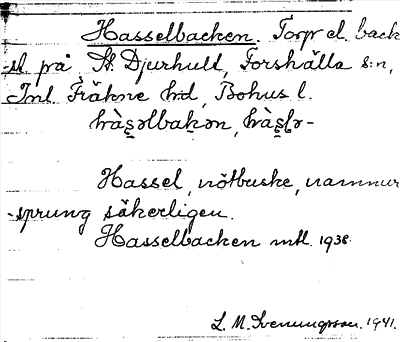 Hasselbacken. Torp el. back
-st. på St. Djurhult, Forshälla s:n,
Inl. Fräkne hd, Bohus l.
hàs̱əlbakən, hàs̱lə-
Hassel, nötbuske, namnur
-sprung säkerligen.
Hasselbacken mtl. 1938.
L. M. Svenungsson. 1941.